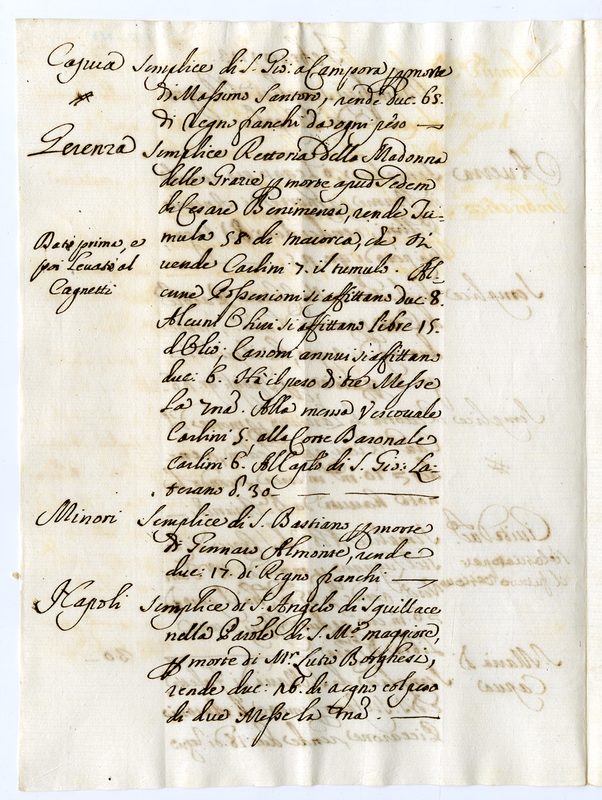 Capua Semplice di S. Gio: a Campora p morte
di Massimo Santoro, rende duc. 65.
di Regno franchi da ogni peso —
Gerenza Semplice Rettoria della Madonna
delle Grazie p morte apud Sedem
di Cesare Benimensa, rende Tu-
mula 58 di maiorca, che si
vende Carlini 7. il tumulo. Al-
cune Possessioni si affittano duc: 8.
Alcuni Olivi si affittano libre 15.
d'Olio; Canoni annui si affittano
duc: 6. Ha il peso di tre Messe
la Sma. Alla mensa Vescovale
Carlini 5. alla Corte Baronale
Carlini 6. Al Caplo di S. Gio: La-
terano d. 30 —
Data prima, e
poi Levata al
Cagnetti
Minori Semplice di S. Bastiano p morte
di Gennaro Almonte, rende
duc: 17. di Regno franchi —
Napoli Semplice di S. Angelo di Squillace
nella Parole di S. Ma maggiore,
p morte di Mr. Lutio Borghesi,
rende duc: 16. di col peso
di due Messe la Sma. —